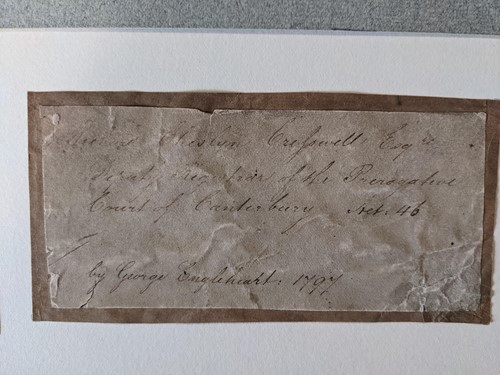 Cresswell Esqre
Deputy Registrar of the Prerogative
Court of Canterbury Aet: 46
by George Engleheart. 1797